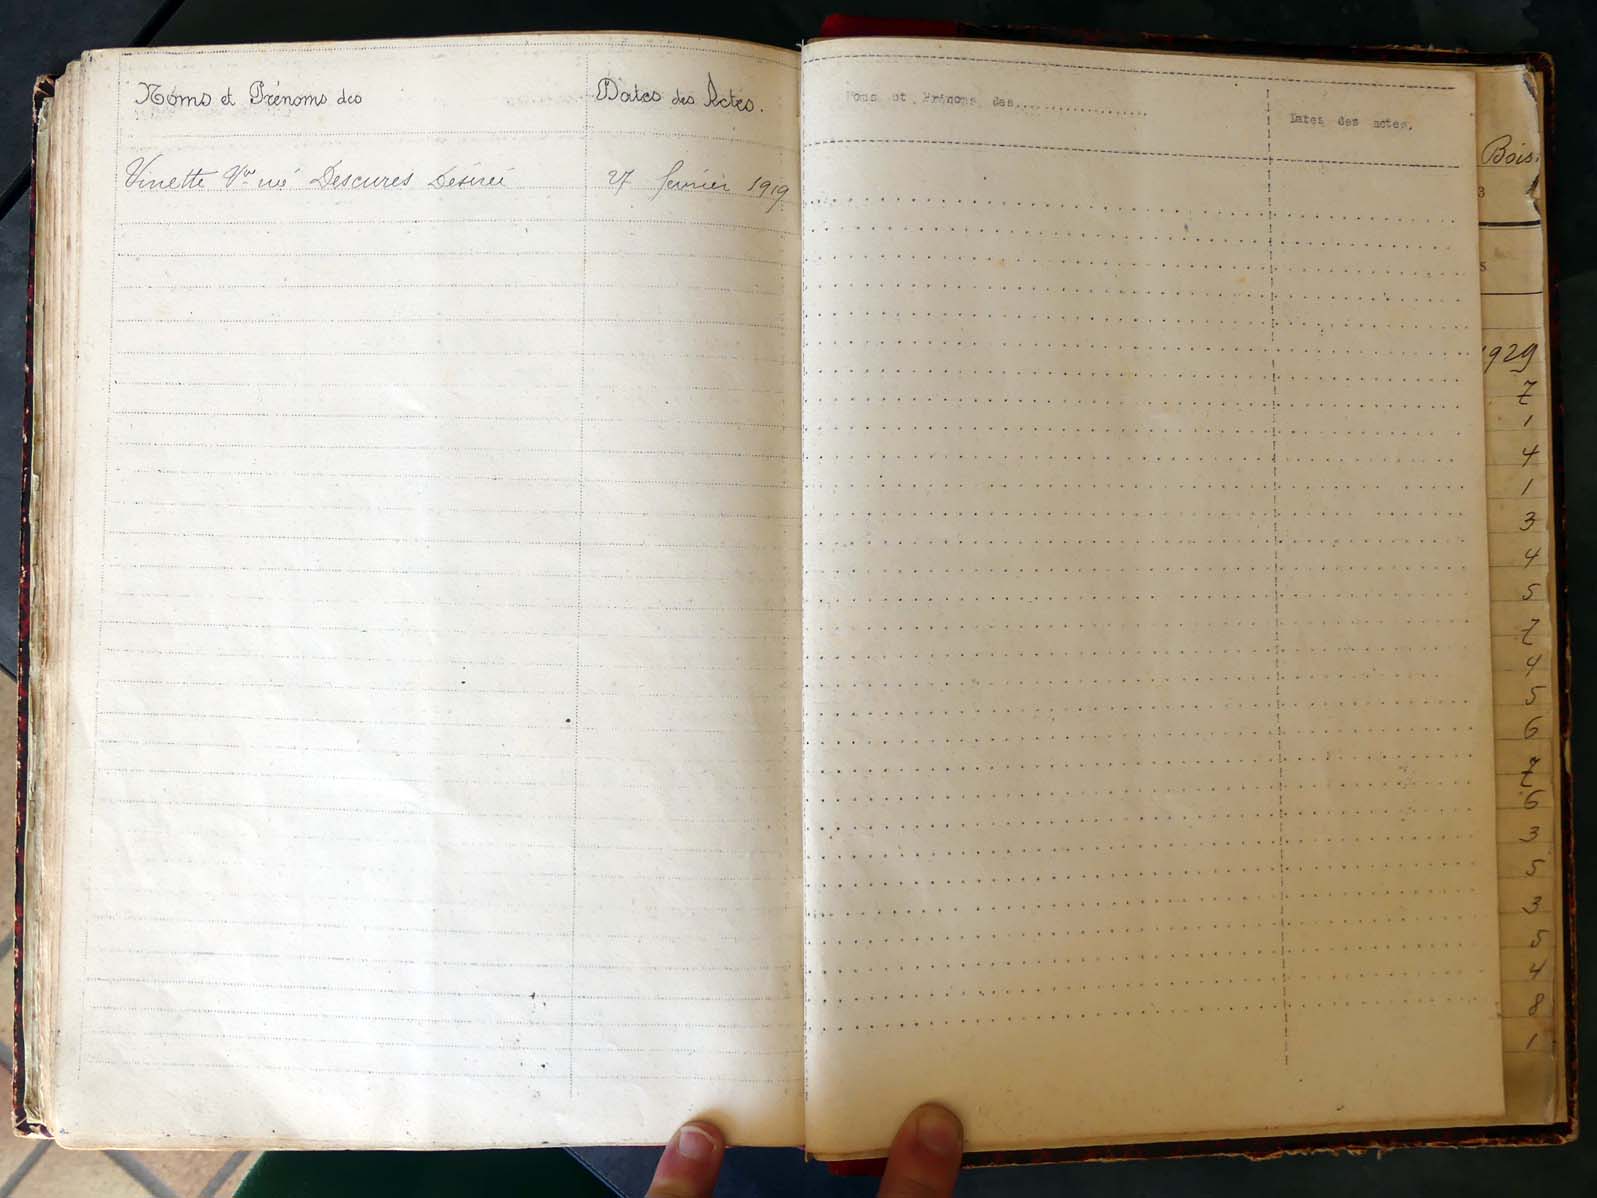 Noms et Prénoms des
Dates des Actes.
Vinette Vve née Descures Désirée
27 février 1919
Noms et Prénoms des...................
Dates des actes.
Bois.
3
S
1929
7
1
4
1
3
4
5
7
4
5
6
7
6
3
5
3
5
4
8
1